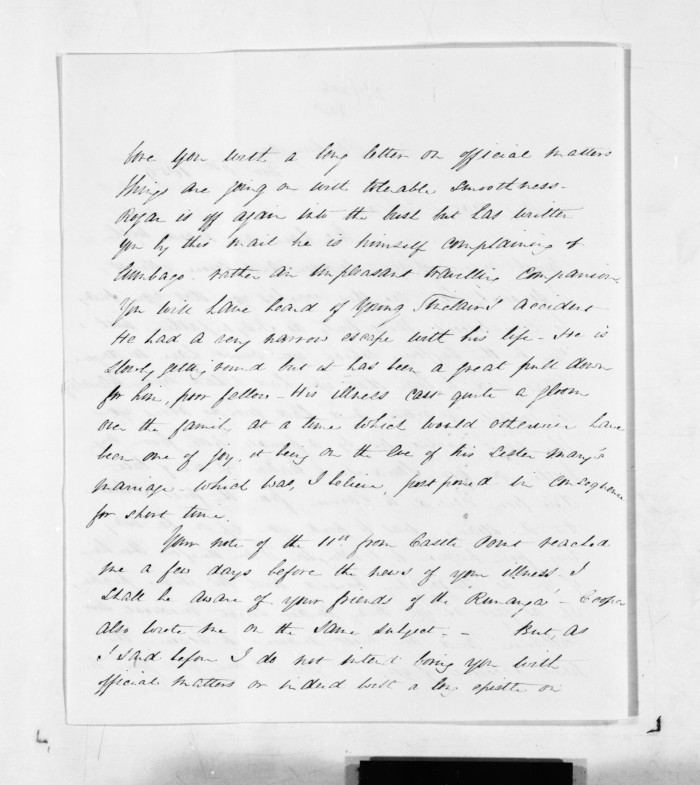 bore you with a long letter on official matters
things are going on with tolerable smoothness -
Rogan is off again into the bush but has written
you by this mail he is himself complaining of
lumbago - rather an unpleasant travelling companion.
You will have heard of Young Sinclair's accident -
He had a very narrow escape with his life - He is
slowly getting round but it has been a great pull down
for him, poor fellow - His illness cast quite a gloom
over the family at a time which would otherwise have
been one of joy, it being on the Eve of his Sister Mary's
marriage - which was, I believe, postponed in consequence
for short time.
Your note of the 11th from Castle Point reached
me a few days before the news of your illness I
shall be aware of your friends of the 'Runanga' - Cooper
also wrote me on the same subject. - But, as
I said before I do not intend boring you with
official matters or indeed with a long epistle on